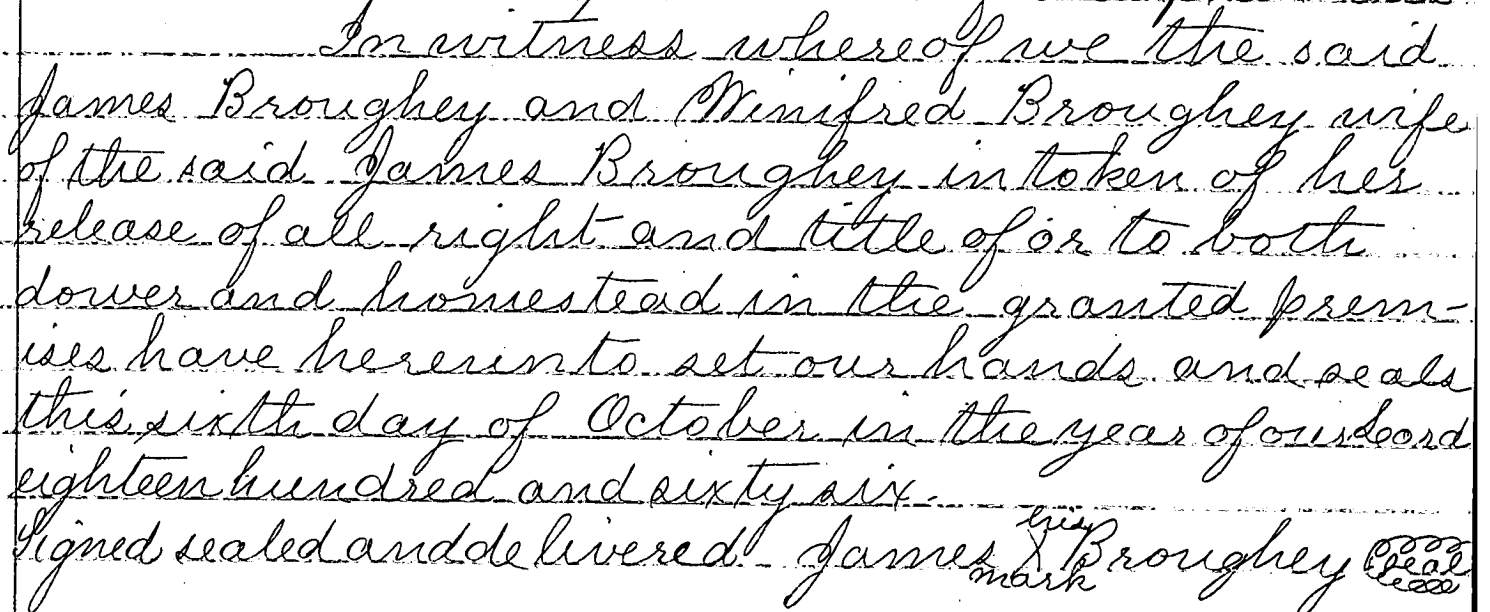 In witness whereof we the said
James Broughey and Winifred Broughey wife
of the said James Broughey in token of her
release of all right and title of or to both
dower and homestead in the granted prem-
ises have hereunto set our hands and seals
this sixth day of October in the year of our Lord
eighteen hundred and sixty six.
Signed sealed and delivered James his X mark Broughey Seal